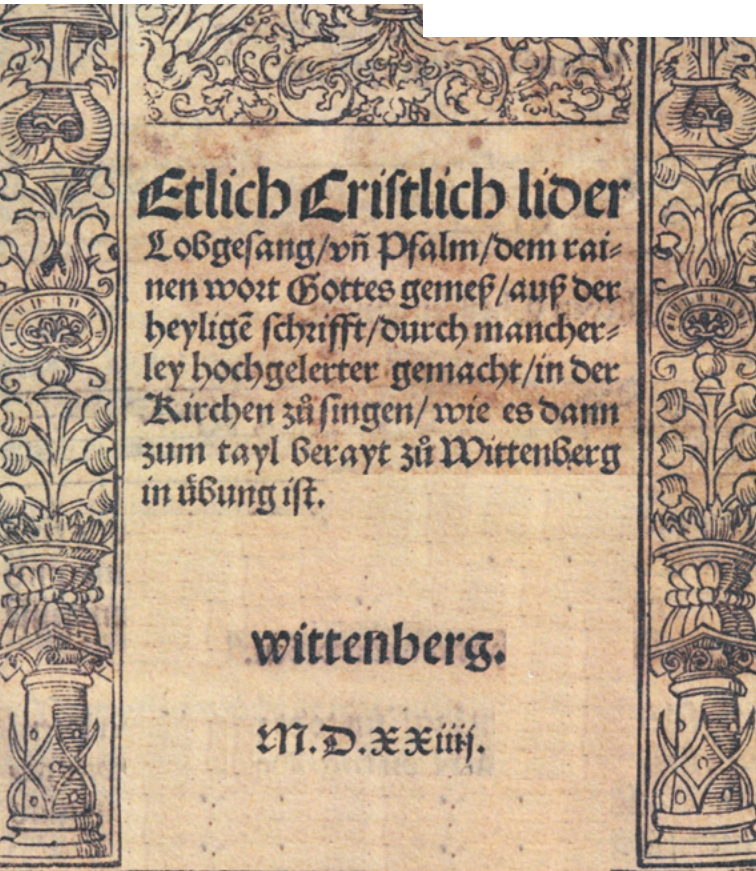 Etlich Cristlich lider
Lobgesang/vñ Psalm/dem rai⸗
nen wort Gottes gemeß/auß der
heyligē schrifft/durch mancher⸗
ley hochgelerter gemacht/in der
Kirchen zůsingen/ wie es dann
zum tayl berayt zů Wittenberg
in übung ist.
wittenberg.
M.D.XXiiij.